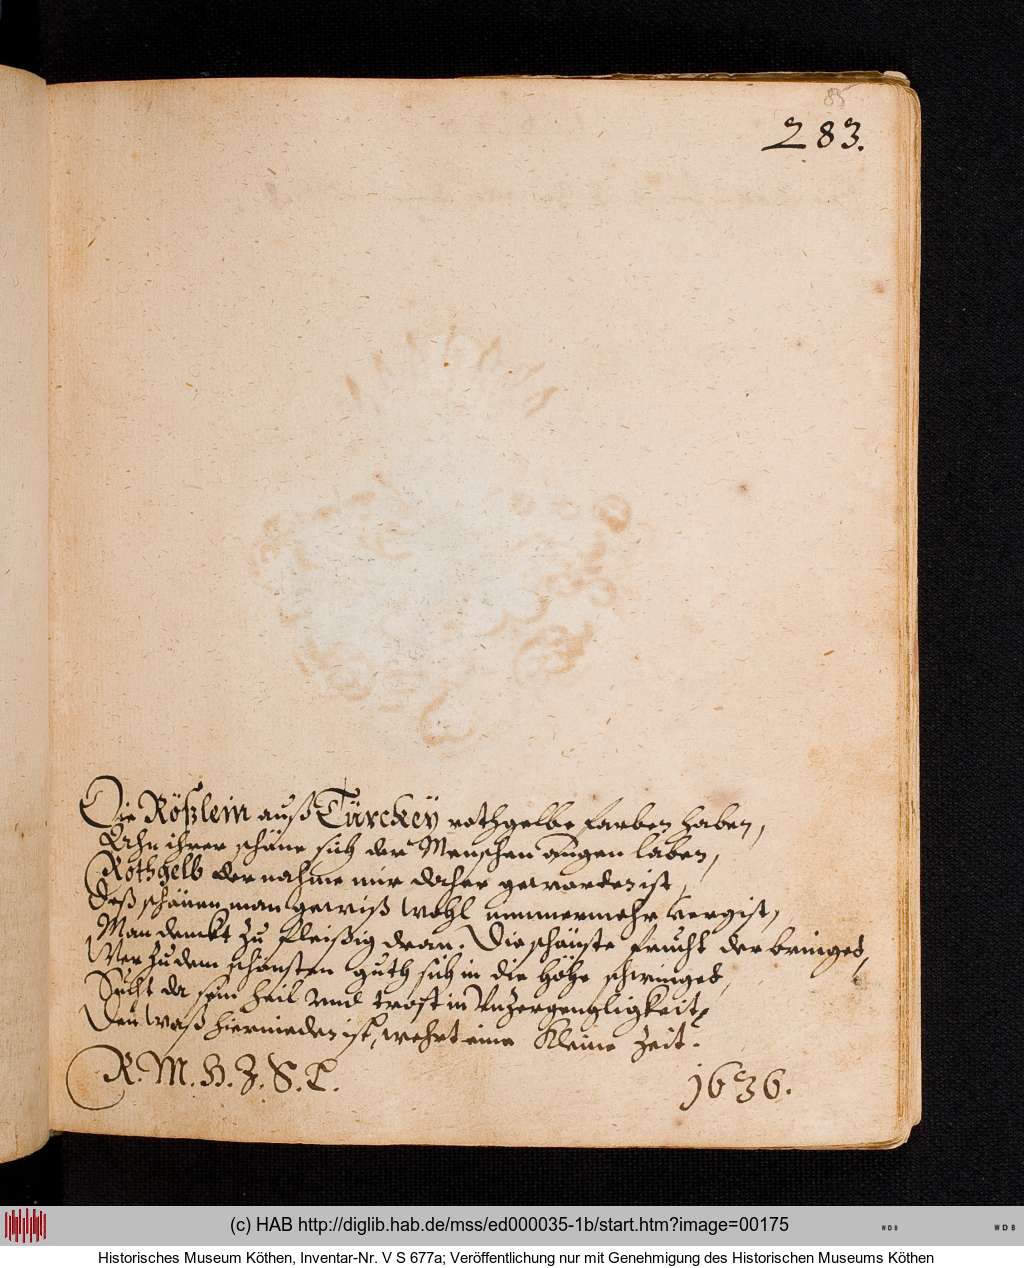 85
283.
Die Rößlein auß Türckeÿ rothgelbe farben haben,
ihrer schöne sich der Menschen augen laben,
Rothgelb der nahme mir daher geworden ist,
deß schönen man gewiß wohl nimmermehr vergist,
Man denckt zu fleißig dran. Die schönste frucht der bringet,
Wer zu dem schönsten guth sich in die höhe schwinget,
Sucht da sein heil und trost in Unzergengligkeit,
Den waß hiernieden ist, wehrt eine kleine Zeit.
R. M. H. Z. S. L.
1636.
(c) HAB http://diglib.hab.de/mss/ed000035-1b/start.htm?image=00175
WDB
WDB
Historisches Museum Köthen, Inventar-Nr. V S 677a; Veröffentlichung nur mit Genehmigung des Historischen Museums Köthen